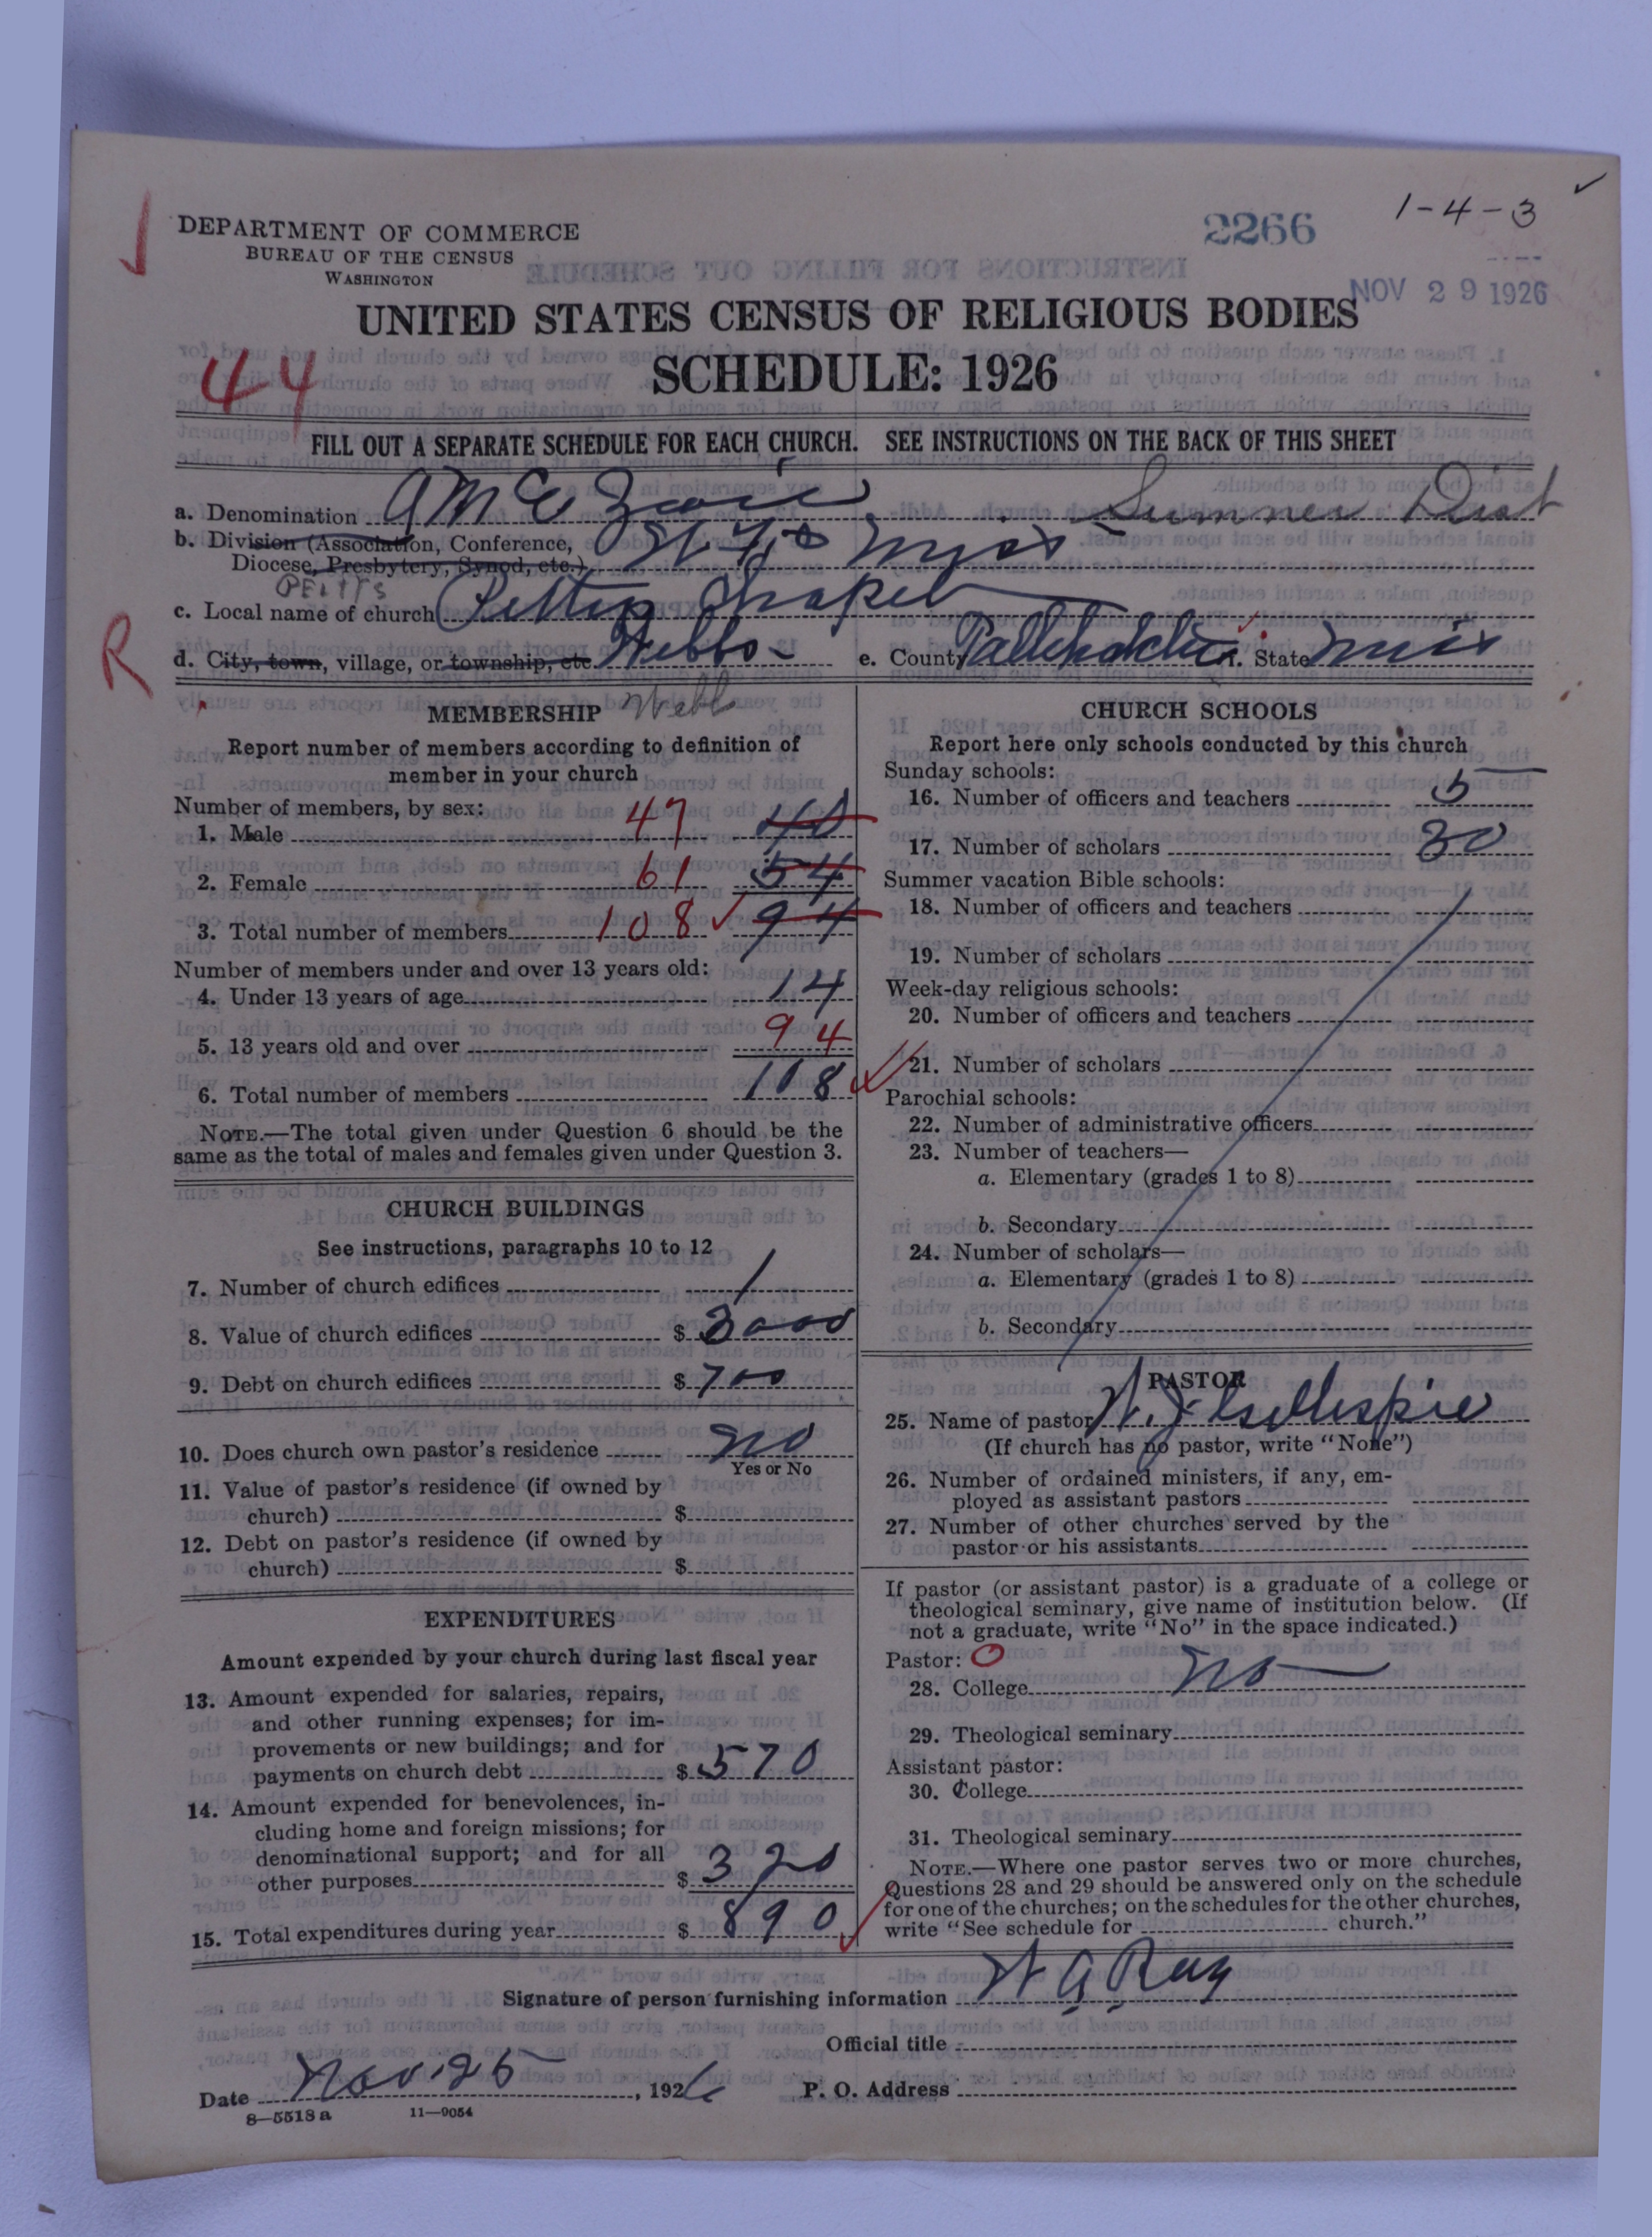 1-4-3
2266
DEPARTMENT OF COMMERCE
BUREAU OF THE CENSUS
WASHINGTON
NOV 29 1926
UNITED STATES CENSUS OF RELIGIOUS BODIES
SCHEDULE: 1926
44
FILL OUT A SEPARATE SCHEDULE FOR EACH CHURCH. SEE INSTRUCTIONS ON THE BACK OF THIS SHEET
a. Denomination A M E Zion Sumner Dist
b. Division (Association, Conference, Miss
Diocese, Presbytery, Synod, etc.)
c. Local name of church Chapel
R
d. City, town, village, or township, etc Webbs e. County f. State Miss
Webb
MEMBERSHIP
Report number of members according to definition of
member in your church
Number of members, by sex:
1. Male 47 40
2. Female 61 54
3. Total number of members 108 94
Number of members under and over 13 years old:
4. Under 13 years of age 14
5. 13 years old and over 94
6. Total number of members 108
NOTE.—The total given under Question 6 should be the
same as the total of males and females given under Question 3.
CHURCH BUILDINGS
See instructions, paragraphs 10 to 12
7. Number of church edifices 1
8. Value of church edifices $ 3000
9. Debt on church edifices $ 700
10. Does church own pastor's residence No
Yes or No
11. Value of pastor's residence (if owned by
church) $
12. Debt on pastor's residence (if owned by
church) $
EXPENDITURES
Amount expended by your church during last fiscal year
13. Amount expended for salaries, repairs,
and other running expenses; for im-
provements or new buildings; and for
payments on church debt $ 570
14. Amount expended for benevolences, in-
cluding home and foreign missions; for
denominational support; and for all
other purposes $ 320
15. Total expenditures during year $ 890
CHURCH SCHOOLS
Report here only schools conducted by this church
Sunday schools:
16. Number of officers and teachers 5
17. Number of scholars 30
Summer vacation Bible schools:
18. Number of officers and teachers
19. Number of scholars
Week-day religious schools:
20. Number of officers and teachers
21. Number of scholars
Parochial schools:
22. Number of administrative officers
23. Number of teachers—
a. Elementary (grades 1 to 8)
b. Secondary
24. Number of scholars—
a. Elementary (grades 1 to 8)
b. Secondary
PASTOR
25. Name of pastor W. J. Gillespie
(If church has no pastor, write "None")
26. Number of ordained ministers, if any, em-
ployed as assistant pastors
27. Number of other churches served by the
pastor or his assistants
If pastor (or assistant pastor) is a graduate of a college or
theological seminary, give name of institution below. (If
not a graduate, write "No" in the space indicated.)
Pastor: O
28. College No
29. Theological seminary
Assistant pastor:
30. College
31. Theological seminary
NOTE.—Where one pastor serves two or more churches,
Questions 28 and 29 should be answered only on the schedule
for one of the churches; on the schedules for the other churches,
write "See schedule for church."
Signature of person furnishing information W G Ray
Official title
Date Nov. 25, 1926 P. O. Address
8—5518 a 11—9054